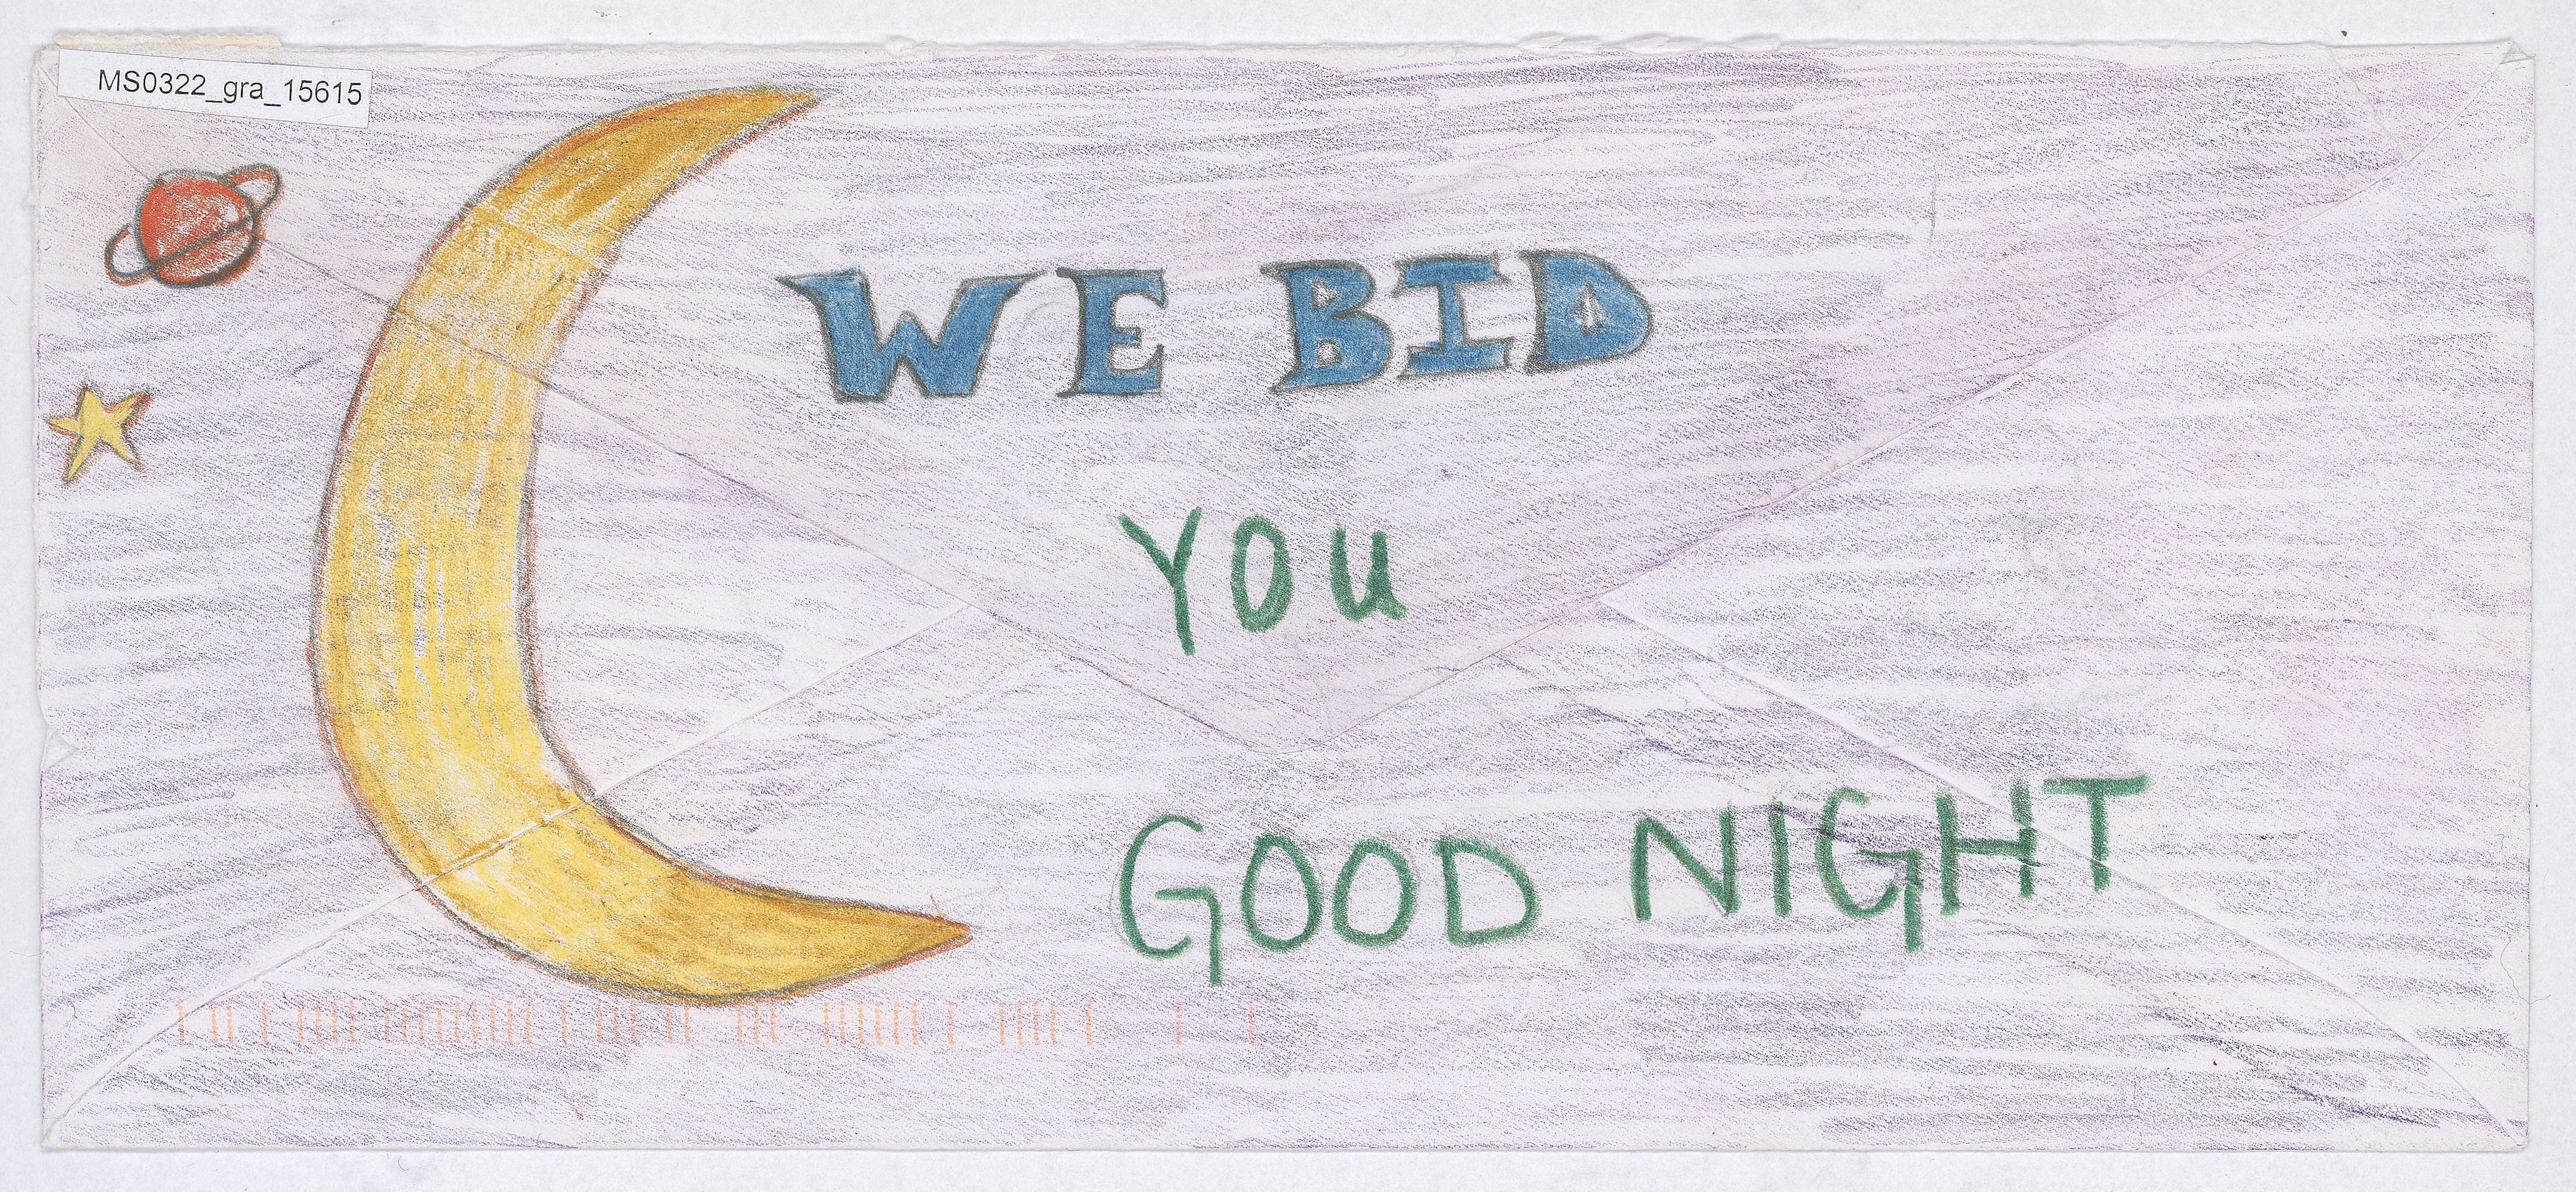 MS0322_gra_15615
WE BID
YOU
GOOD NIGHT